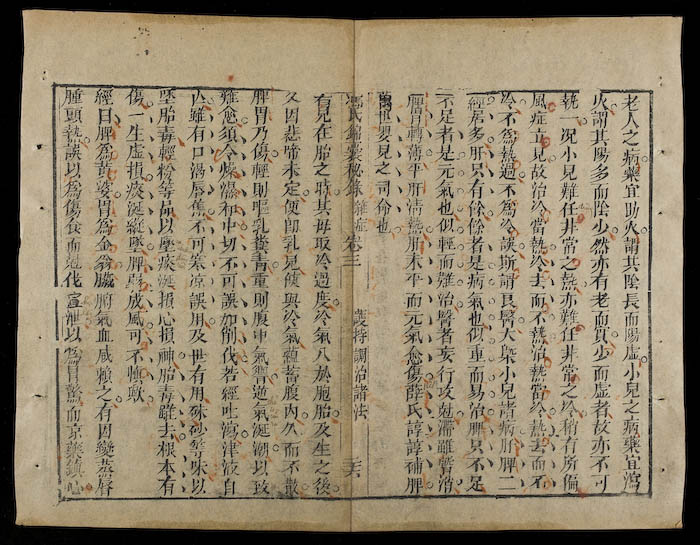 老人之病藥宜助火謂其陰長而陽虛小兒之病藥宜瀉
火謂其陽多而陰少然亦有老而實少而虛者故亦不可
執一況小兒難任非常之熱亦難任非常之冷稍有所偏
風症立見故治冷當熱冷去而不熱治熱當冷熱去而不
冷不為熱過不為冷誤斯謂良醫大槩小兒諸病肝脾二
經居多肝只有餘餘者是病氣也似重而易治脾只不足
不足者是元氣也似輕而難治醫者妄行攻劫雖暫治
脾胃轉薄平肝清熱肝未平而元氣愈傷薛氏諄諄補脾
萬世嬰兒之司命也
馮氏錦囊秘錄 雜症 卷三 護持調治諸法
有兒在胎之時其母取冷過度冷氣入於胞胎及生之後
又因悲啼未定便卽乳兒使與冷氣蘊蓄腹內久而不散
脾胃乃傷輕則嘔乳糞青重則腹中氣響逆氣涎潮以致
難愈須令燥濕和中切不可誤加削伐若經吐瀉津液自
亡雖有口渴唇焦不可寒凉誤用及世有用硃砂等味以
墜胎毒輕粉等品以壓痰涎損心損神胎毒雖去根本有
傷一生虛損痰涎縱墜脾弱成風可不慎歟
經曰脾為黃婆胃為金翁臟腑氣血咸賴之有因變蒸唇
腫頭熱誤以為傷食而尅化宣泄以為目驚而凉藥鎮心